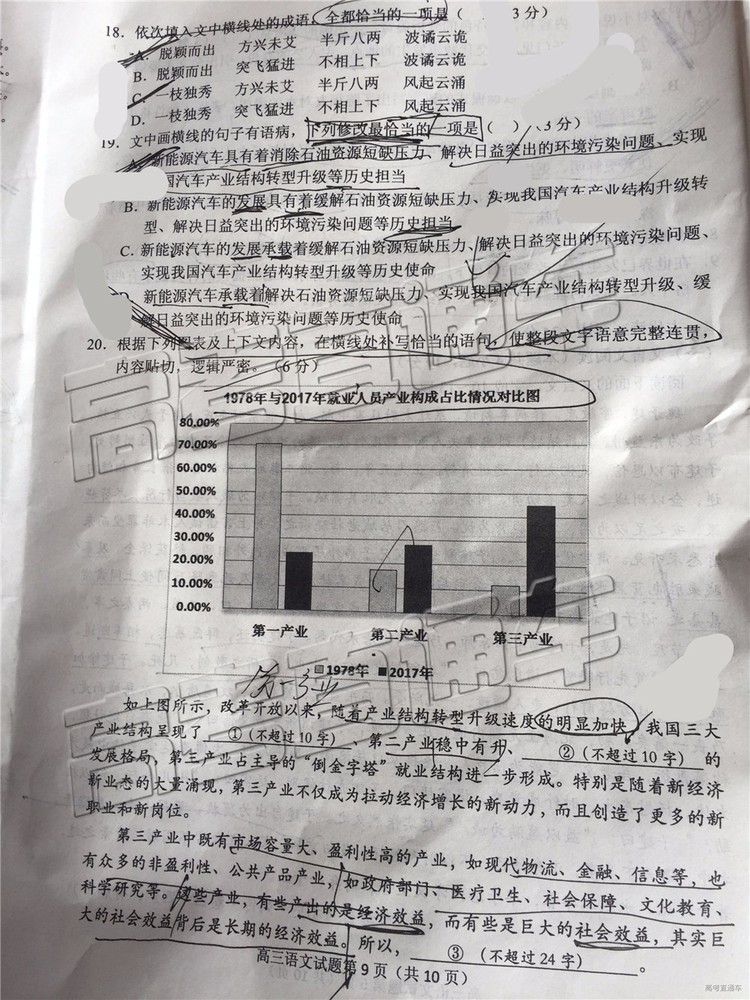 18．依次填入文中横线处的成语，全都恰当的一项是（　　3分）
A．脱颖而出　方兴未艾　半斤八两　波谲云诡
B．脱颖而出　突飞猛进　不相上下　波谲云诡
C．一枝独秀　方兴未艾　半斤八两　风起云涌
D．一枝独秀　突飞猛进　不相上下　风起云涌
19．文中画横线的句子有语病，下列修改最恰当的一项是（　　）（3分）
A．新能源汽车具有着消除石油资源短缺压力、解决日益突出的环境污染问题、实现
国汽车产业结构转型升级等历史担当
B．新能源汽车的发展具有着缓解石油资源短缺压力、实现我国汽车产业结构升级转
型、解决日益突出的环境污染问题等历史担当
C．新能源汽车的发展承载着缓解石油资源短缺压力、解决日益突出的环境污染问题、
实现我国汽车产业结构转型升级等历史使命
D．新能源汽车承载着解决石油资源短缺压力、实现我国汽车产业结构转型升级、缓
解日益突出的环境污染问题等历史使命
20．根据下列图表及上下文内容，在横线处补写恰当的语句，使整段文字语意完整连贯，
内容贴切，逻辑严密。（6分）
1978年与2017年就业人员产业构成占比情况对比图
80.00%
70.00%
60.00%
50.00%
40.00%
30.00%
20.00%
10.00%
0.00%
第一产业　第二产业　第三产业
1978年　2017年
如上图所示，改革开放以来，随着产业结构转型升级速度的明显加快，我国三大
产业结构呈现了　①（不超过10字）　、第二产业稳中有升、　②（不超过10字）　的
发展格局，第三产业占主导的“倒金字塔”就业结构进一步形成。特别是随着新经济
新业态的大量涌现，第三产业不仅成为拉动经济增长的新动力，而且创造了更多的新
职业和新岗位。
第三产业中既有市场容量大、盈利性高的产业，如现代物流、金融、信息等，也
有众多的非盈利性、公共产品产业，如政府部门、医疗卫生、社会保障、文化教育、
科学研究等。这些产业，有些产出的是经济效益，而有些是巨大的社会效益，其实巨
大的社会效益背后是长期的经济效益。所以，　③（不超过24字）　。
高三语文试题第9页（共10页）
高考直通车
高考直通车
高考直通车